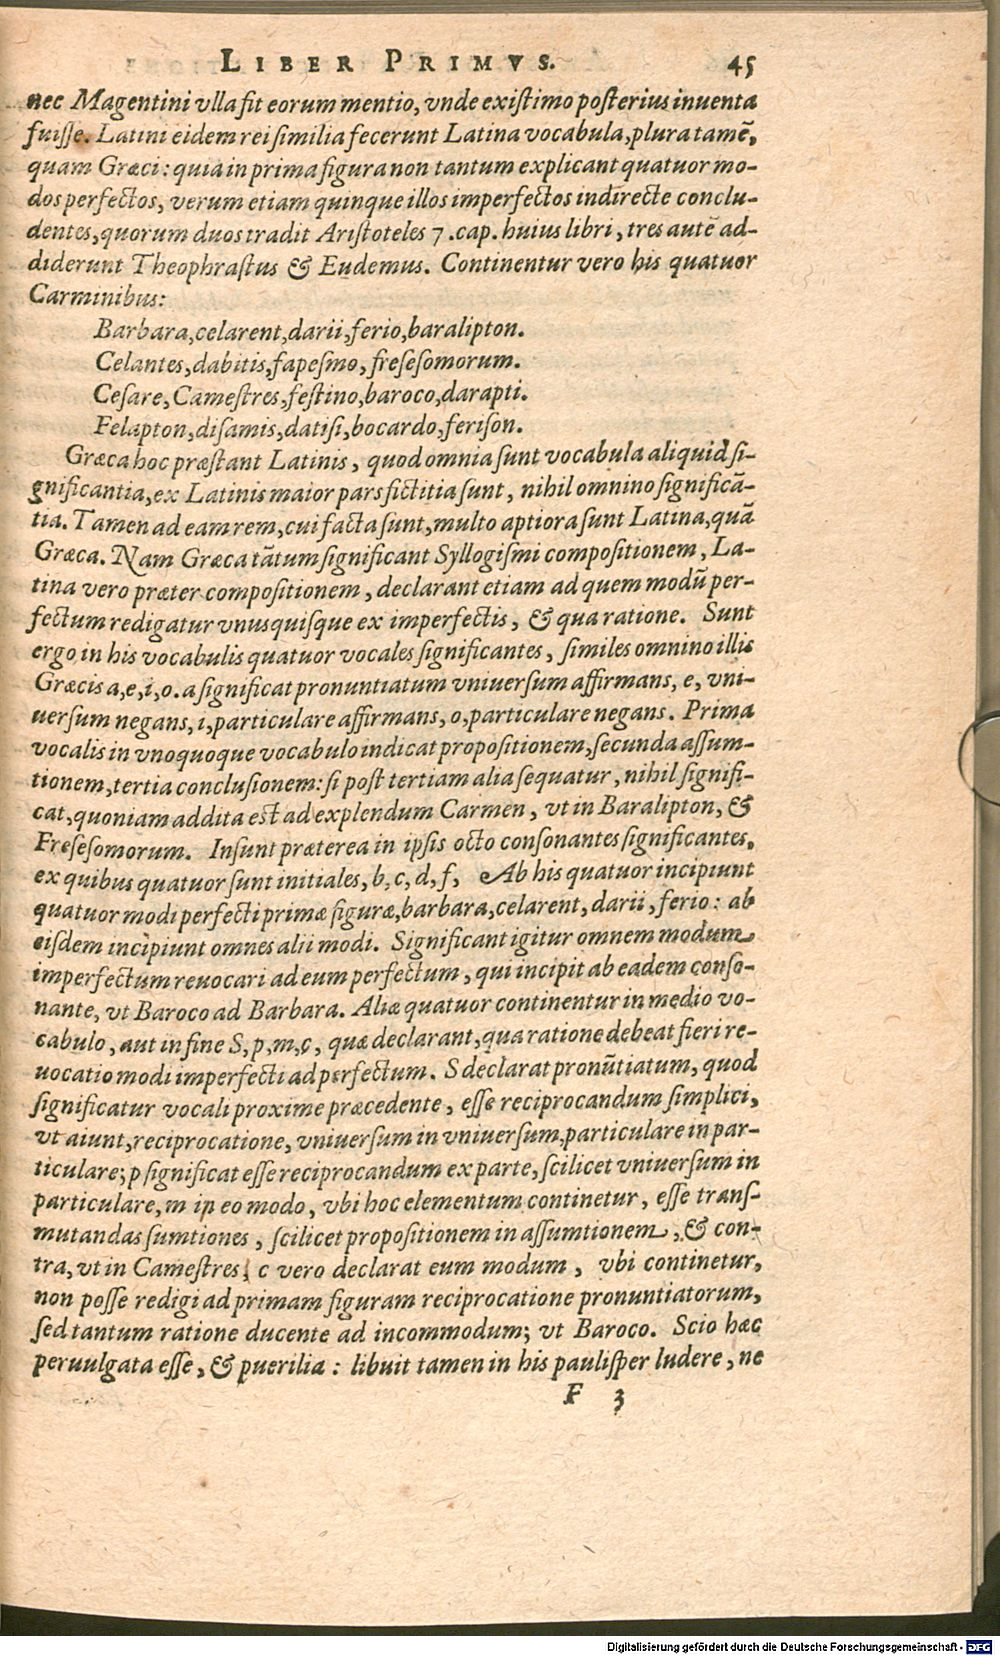 LIBER PRIMVS. 45
nec Magentini vlla fit eorum mentio, vnde existimo posterius inuenta
fuisse. Latini eidem rei similia fecerunt Latina vocabula, plura tamē,
quam Græci: quia in prima figura non tantum explicant quatuor mo-
dos perfectos, verum etiam quinque illos imperfectos indirecte conclu-
dentes, quorum duos tradit Aristoteles 7. cap. huius libri, tres autē ad-
diderunt Theophrastus & Eudemus. Continentur vero his quatuor
Carminibus:
Barbara, celarent, darii, ferio, baralipton.
Celantes, dabitis, fapesmo, fresesomorum.
Cesare, Camestres, festino, baroco, darapti.
Felapton, disamis, datisi, bocardo, ferison.
Græca hoc præstant Latinis, quod omnia sunt vocabula aliquid si-
gnificantia, ex Latinis maior pars fictitia sunt, nihil omnino significā-
tia. Tamen ad eam rem, cui facta sunt, multo aptiora sunt Latina, quā
Græca. Nam Græca tātum significant Syllogismi compositionem, La-
tina vero præter compositionem, declarant etiam ad quem modū per-
fectum redigatur vnusquisque ex imperfectis, & qua ratione. Sunt
ergo in his vocabulis quatuor vocales significantes, similes omnino illis
Græcis a, e, i, o. a significat pronuntiatum vniuersum affirmans, e, vni-
uersum negans, i, particulare affirmans, o, particulare negans. Prima
vocalis in vnoquoque vocabulo indicat propositionem, secunda assum-
tionem, tertia conclusionem: si post tertiam alia sequatur, nihil signifi-
cat, quoniam addita est ad explendum Carmen, vt in Baralipton, &
Fresesomorum. Insunt præterea in ipsis octo consonantes significantes,
ex quibus quatuor sunt initiales, b, c, d, f, Ab his quatuor incipiunt
quatuor modi perfecti primæ figuræ, barbara, celarent, darii, ferio: ab
eisdem incipiunt omnes alii modi. Significant igitur omnem modum
imperfectum reuocari ad eum perfectum, qui incipit ab eadem conso-
nante, vt Baroco ad Barbara. Aliæ quatuor continentur in medio vo-
cabulo, aut in fine S, p, m, c, quæ declarant, qua ratione debeat fieri re-
uocatio modi imperfecti ad perfectum. S declarat pronūtiatum, quod
significatur vocali proxime præcedente, esse reciprocandum simplici,
vt aiunt, reciprocatione, vniuersum in vniuersum, particulare in par-
ticulare; p significat esse reciprocandum ex parte, scilicet vniuersum in
particulare, m in eo modo, vbi hoc elementum continetur, esse trans-
mutandas sumtiones, scilicet propositionem in assumtionem, & con-
tra, vt in Camestres; c vero declarat eum modum, vbi continetur,
non posse redigi ad primam figuram reciprocatione pronuntiatorum,
sed tantum ratione ducente ad incommodum; vt Baroco. Scio hæc
peruulgata esse, & puerilia: libuit tamen in his paulisper ludere, ne
F 3
Digitalisierung gefördert durch die Deutsche Forschungsgemeinschaft - DFG